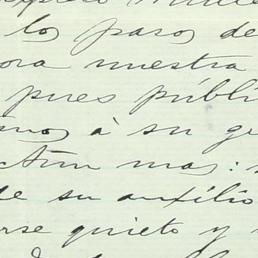 los pasos de
ora nuestra
pues públi
mos à su ge
mas:
de su auxilio
rse quieto y